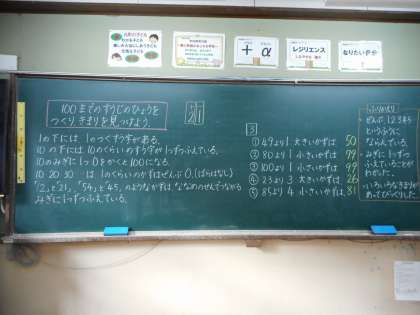 ＋α
レジリエンス
なりたい自分
100までのすうじのひょうを
つくり、きまりを見つけよう。
1の下には、1のつくすう字がある。
10の下には、10のくらいのすう字が1つずつふえている。
10のみぎに1つ0をかくと100になる。
10 20 30 … は 1のくらいのかずはぜんぶ0。(ばらはなし)
「12」と「21」、「54」と「45」のようなかずは、ななめのせんでつながる
みぎに1つずつふえている。
3
① 49より1大きいかずは、50
② 80より1小さいかずは、79
③ 100より1小さいかずは、99
④ 23より3大きいかずは、26
⑤ 85より4小さいかずは、81
ふりかえり
というふうに
ならんでいる。
みぎに1つずつ
ふえていることが
わかった。
いろいろなきまりが
あってびっくりした